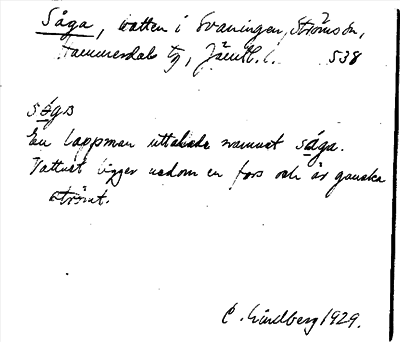 Såga, vatten i Svaningen, Ströms sn,
Hammerdals tg, Jämtl. l. 538
såga
En lappman uttalade namnet såga.
Vattnet ligger nedom en fors och är ganska
strömt.
C. Lindberg 1929.